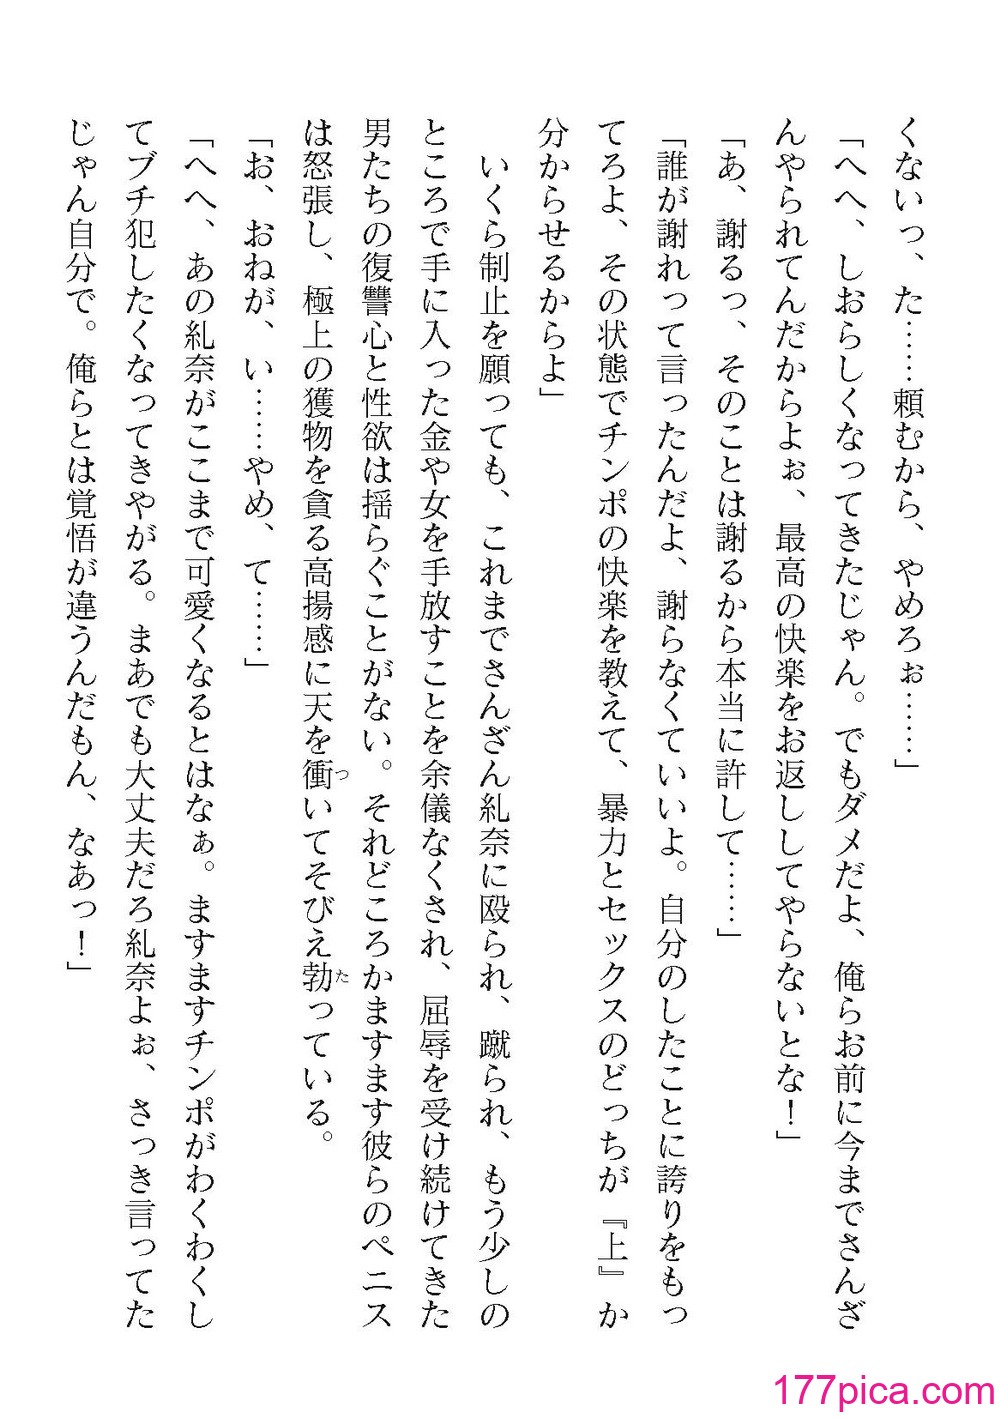 くないっ、た……頼むから、やめろぉ……」
「へへ、しおらしくなってきたじゃん。でもダメだよ、俺らお前に今までさんざ
んやられてんだからよぉ、最高の快楽をお返ししてやらないとな！」
「あ、謝るっ、そのことは謝るから本当に許して……」
「誰が謝れって言ったんだよ、謝らなくていいよ。自分のしたことに誇りをもっ
てろよ、その状態でチンポの快楽を教えて、暴力とセックスのどっちが『上』か
分からせるからよ」
いくら制止を願っても、これまでさんざん糺奈に殴られ、蹴られ、もう少しの
ところで手に入った金や女を手放すことを余儀なくされ、屈辱を受け続けてきた
男たちの復讐心と性欲は揺らぐことがない。それどころかますます彼らのペニス
は怒張し、極上の獲物を貪る高揚感に天を衝いてそびえ勃っている。
「お、おねが、い……やめ、て……」
「へへ、あの糺奈がここまで可愛くなるとはなぁ。ますますチンポがわくわくし
てブチ犯したくなってきやがる。まあでも大丈夫だろ糺奈よぉ、さっき言ってた
じゃん自分で。俺らとは覚悟が違うんだもん、なあっ！」
177pica.com